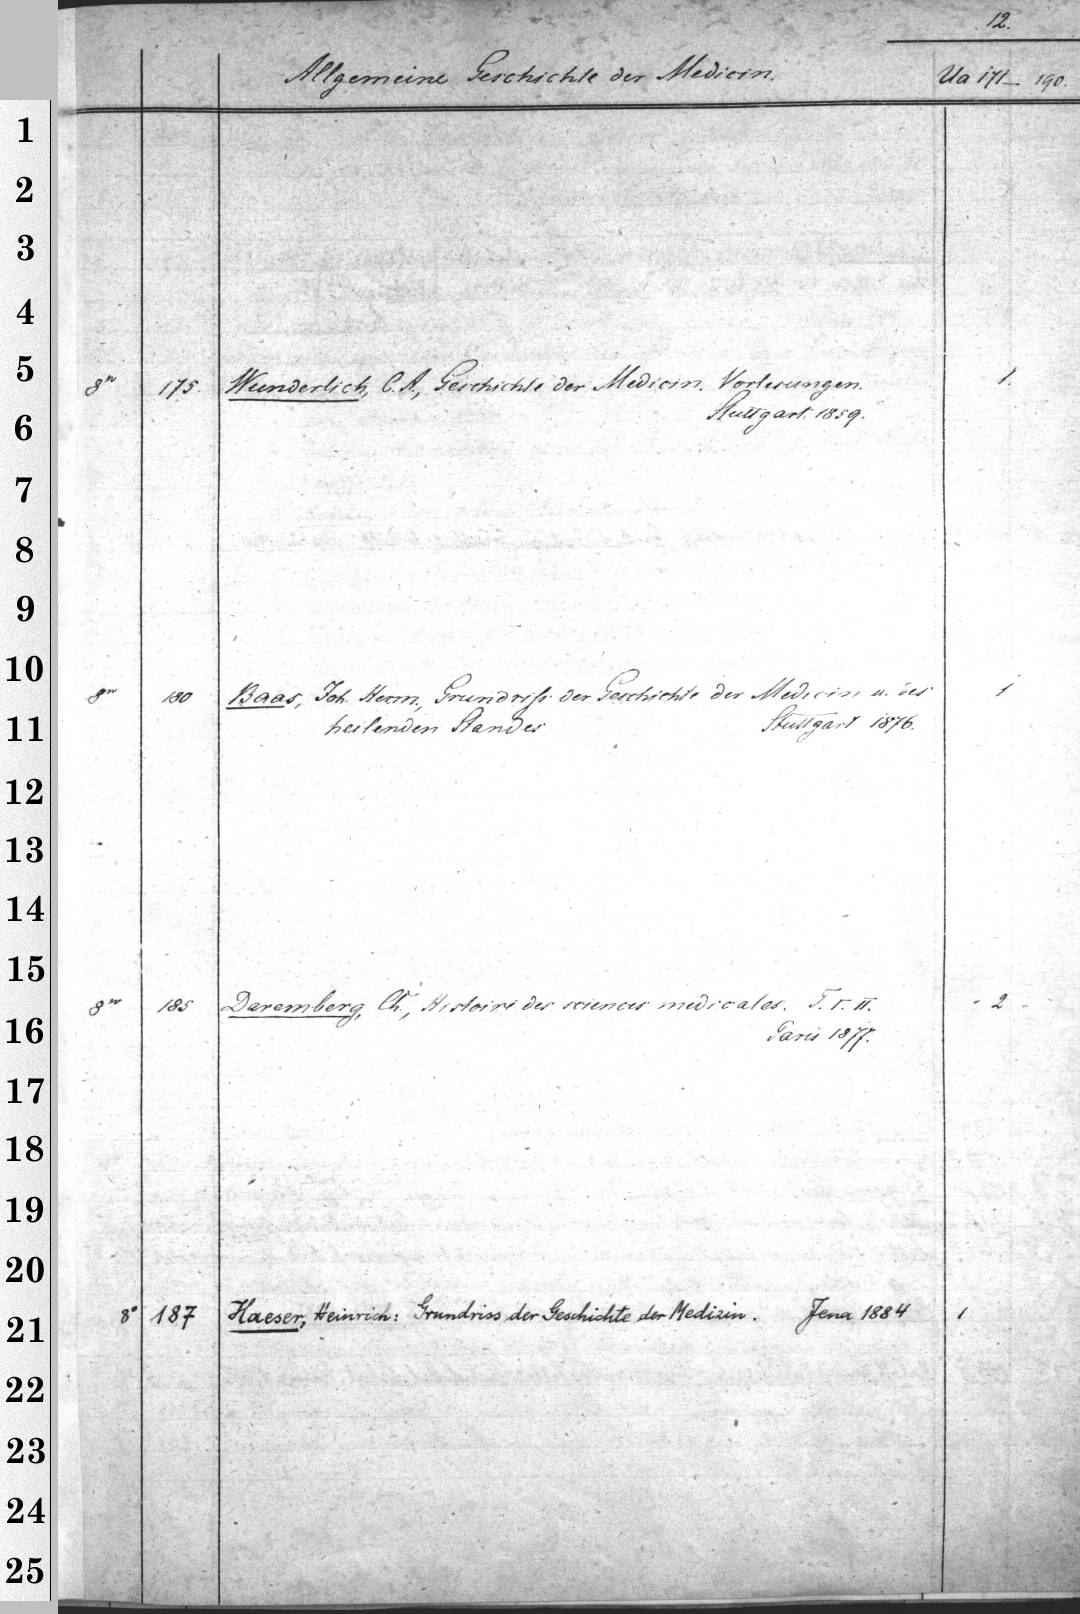 12.
Allgemeine Geschichte der Medicin. Ua 171_ 190.
1
2
3
4
5
8° 175. Wunderlich, C. A., Geschichte der Medicin. Vorlesungen. 1.
Stuttgart. 1859.
6
7
8
9
10
8° 180 Baas, Joh. Herm., Grundriß der Geschichte der Medicin u. des 1
11
heilenden Standes Stuttgart 1876.
12
13
14
15
8° 185 Daremberg, Ch., Histoire des sciences medicales. T. I. II. - 2 -
16
Paris 1877.
17
18
19
20
8° 187 Haeser, Heinrich: Grundriss der Geschichte der Medizin. Jena 1884 1
21
22
23
24
25